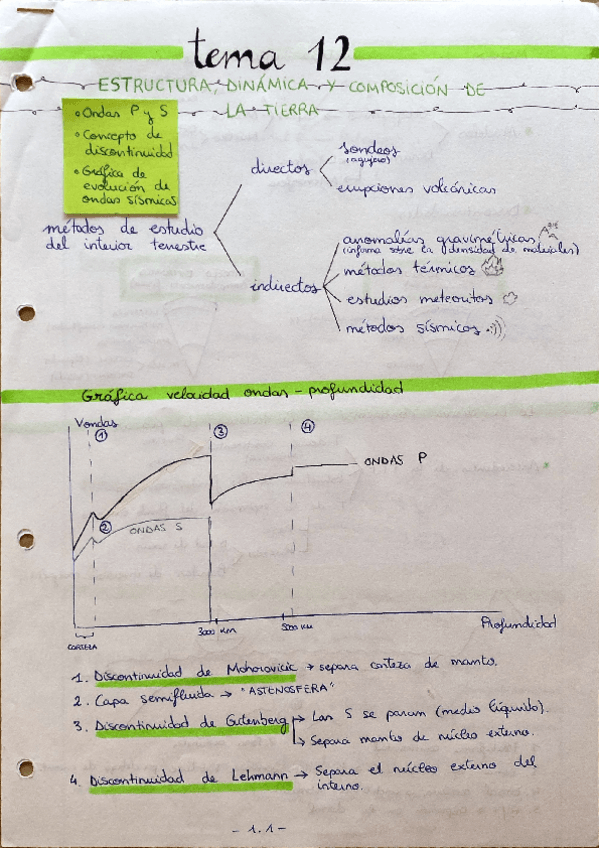 tema 12
ESTRUCTURA, DINÁMICA Y COMPOSICIÓN DE
LA TIERRA
• Ondas P y S
• Concepto de
discontinuidad
• Gráfica de
evolución de
ondas sísmicas
métodos de estudio
del interior terrestre
directos
sondeos
(agujero)
erupciones volcánicas
indirectos
anomalías gravimétricas
(informa sbre la densidad de materiales)
métodos térmicos
estudios meteoritos
métodos sísmicos
Gráfica velocidad ondas - profundidad
Vondas
1
3
4
ONDAS P
2
ONDAS S
3000 KM
5000 KM
Profundidad
CORTEZA
1. Discontinuidad de Mohorovicic → separa corteza de manto.
2. Capa semifluida → "ASTENOSFERA"
3. Discontinuidad de Gutenberg → Las S se paran (medio líquido).
↳ Separa manto de núcleo externo.
4. Discontinuidad de Lehmann → Separa el núcleo externo del
interno.
- 1.1 -